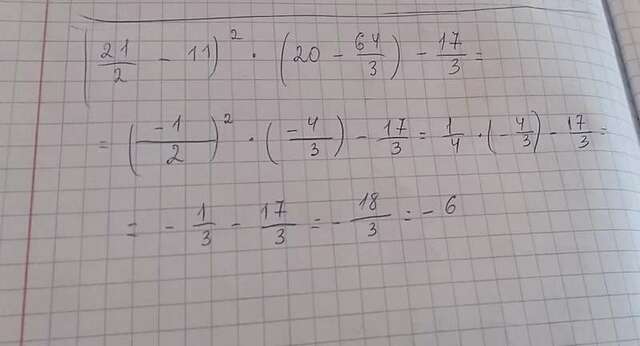 (21/2 - 11)² · (20 - 64/3) - 17/3 =
= (-1/2)² · (-4/3) - 17/3 = 1/4 · (-4/3) - 17/3 =
= -1/3 - 17/3 = -18/3 = -6